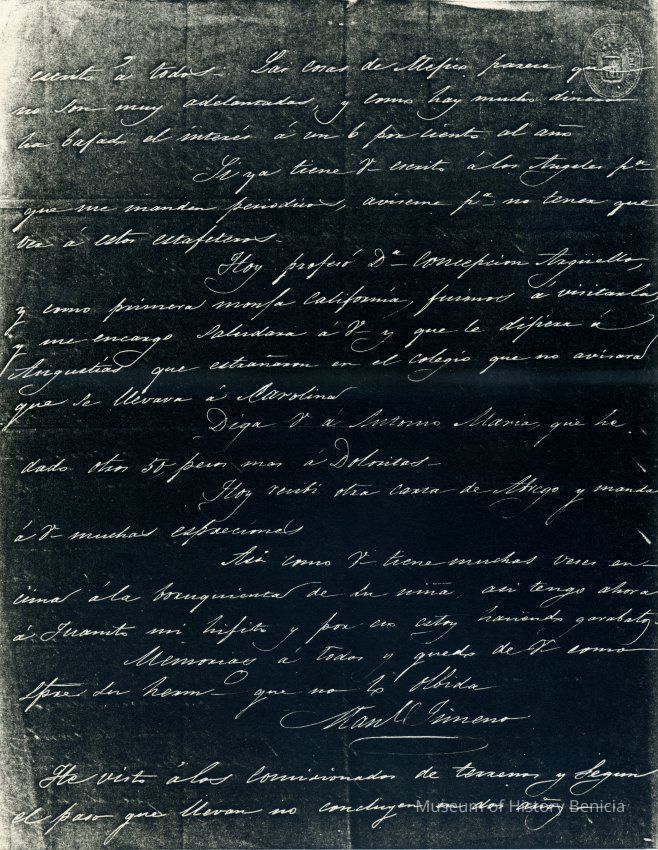 cuento à todos. Las cosas de Mejico parece que
no son muy adelantadas, y como hay mucho dinero
ha bajado el interés á un 6 por ciento al año
Si ya tiene V escrito á los Angeles pa
que me manden periodicos, aviseme pa no tener que
ver á estos estafeteros.
Hoy profesó Da Concepcion Arguello,
y como primera monja California, fuimos á visitarla
y me encargó saludara á V y que le dijera á
Angustias que estrañaron en el colegio que no avisara
que se llevava á Carolina
Diga V á Antonio Maria, que he
dado otros 50 pesos mas á Doloritas.
Hoy recibi otra carta de Abrego y manda
á V muchas espreciones
Asi como V tiene muchas veses en-
cima á la de su niña, asi tengo ahora
á Juanito mi hijito y por eso estoy haciendo garabatos.
Memorias á todos y quedo de V como
spre su herm que no lo olbida
Manl Jimeno
He visto á los Comisionados de terrenos y segun
el paso que llevan no concluyen en dos años
Museum of History Benicia